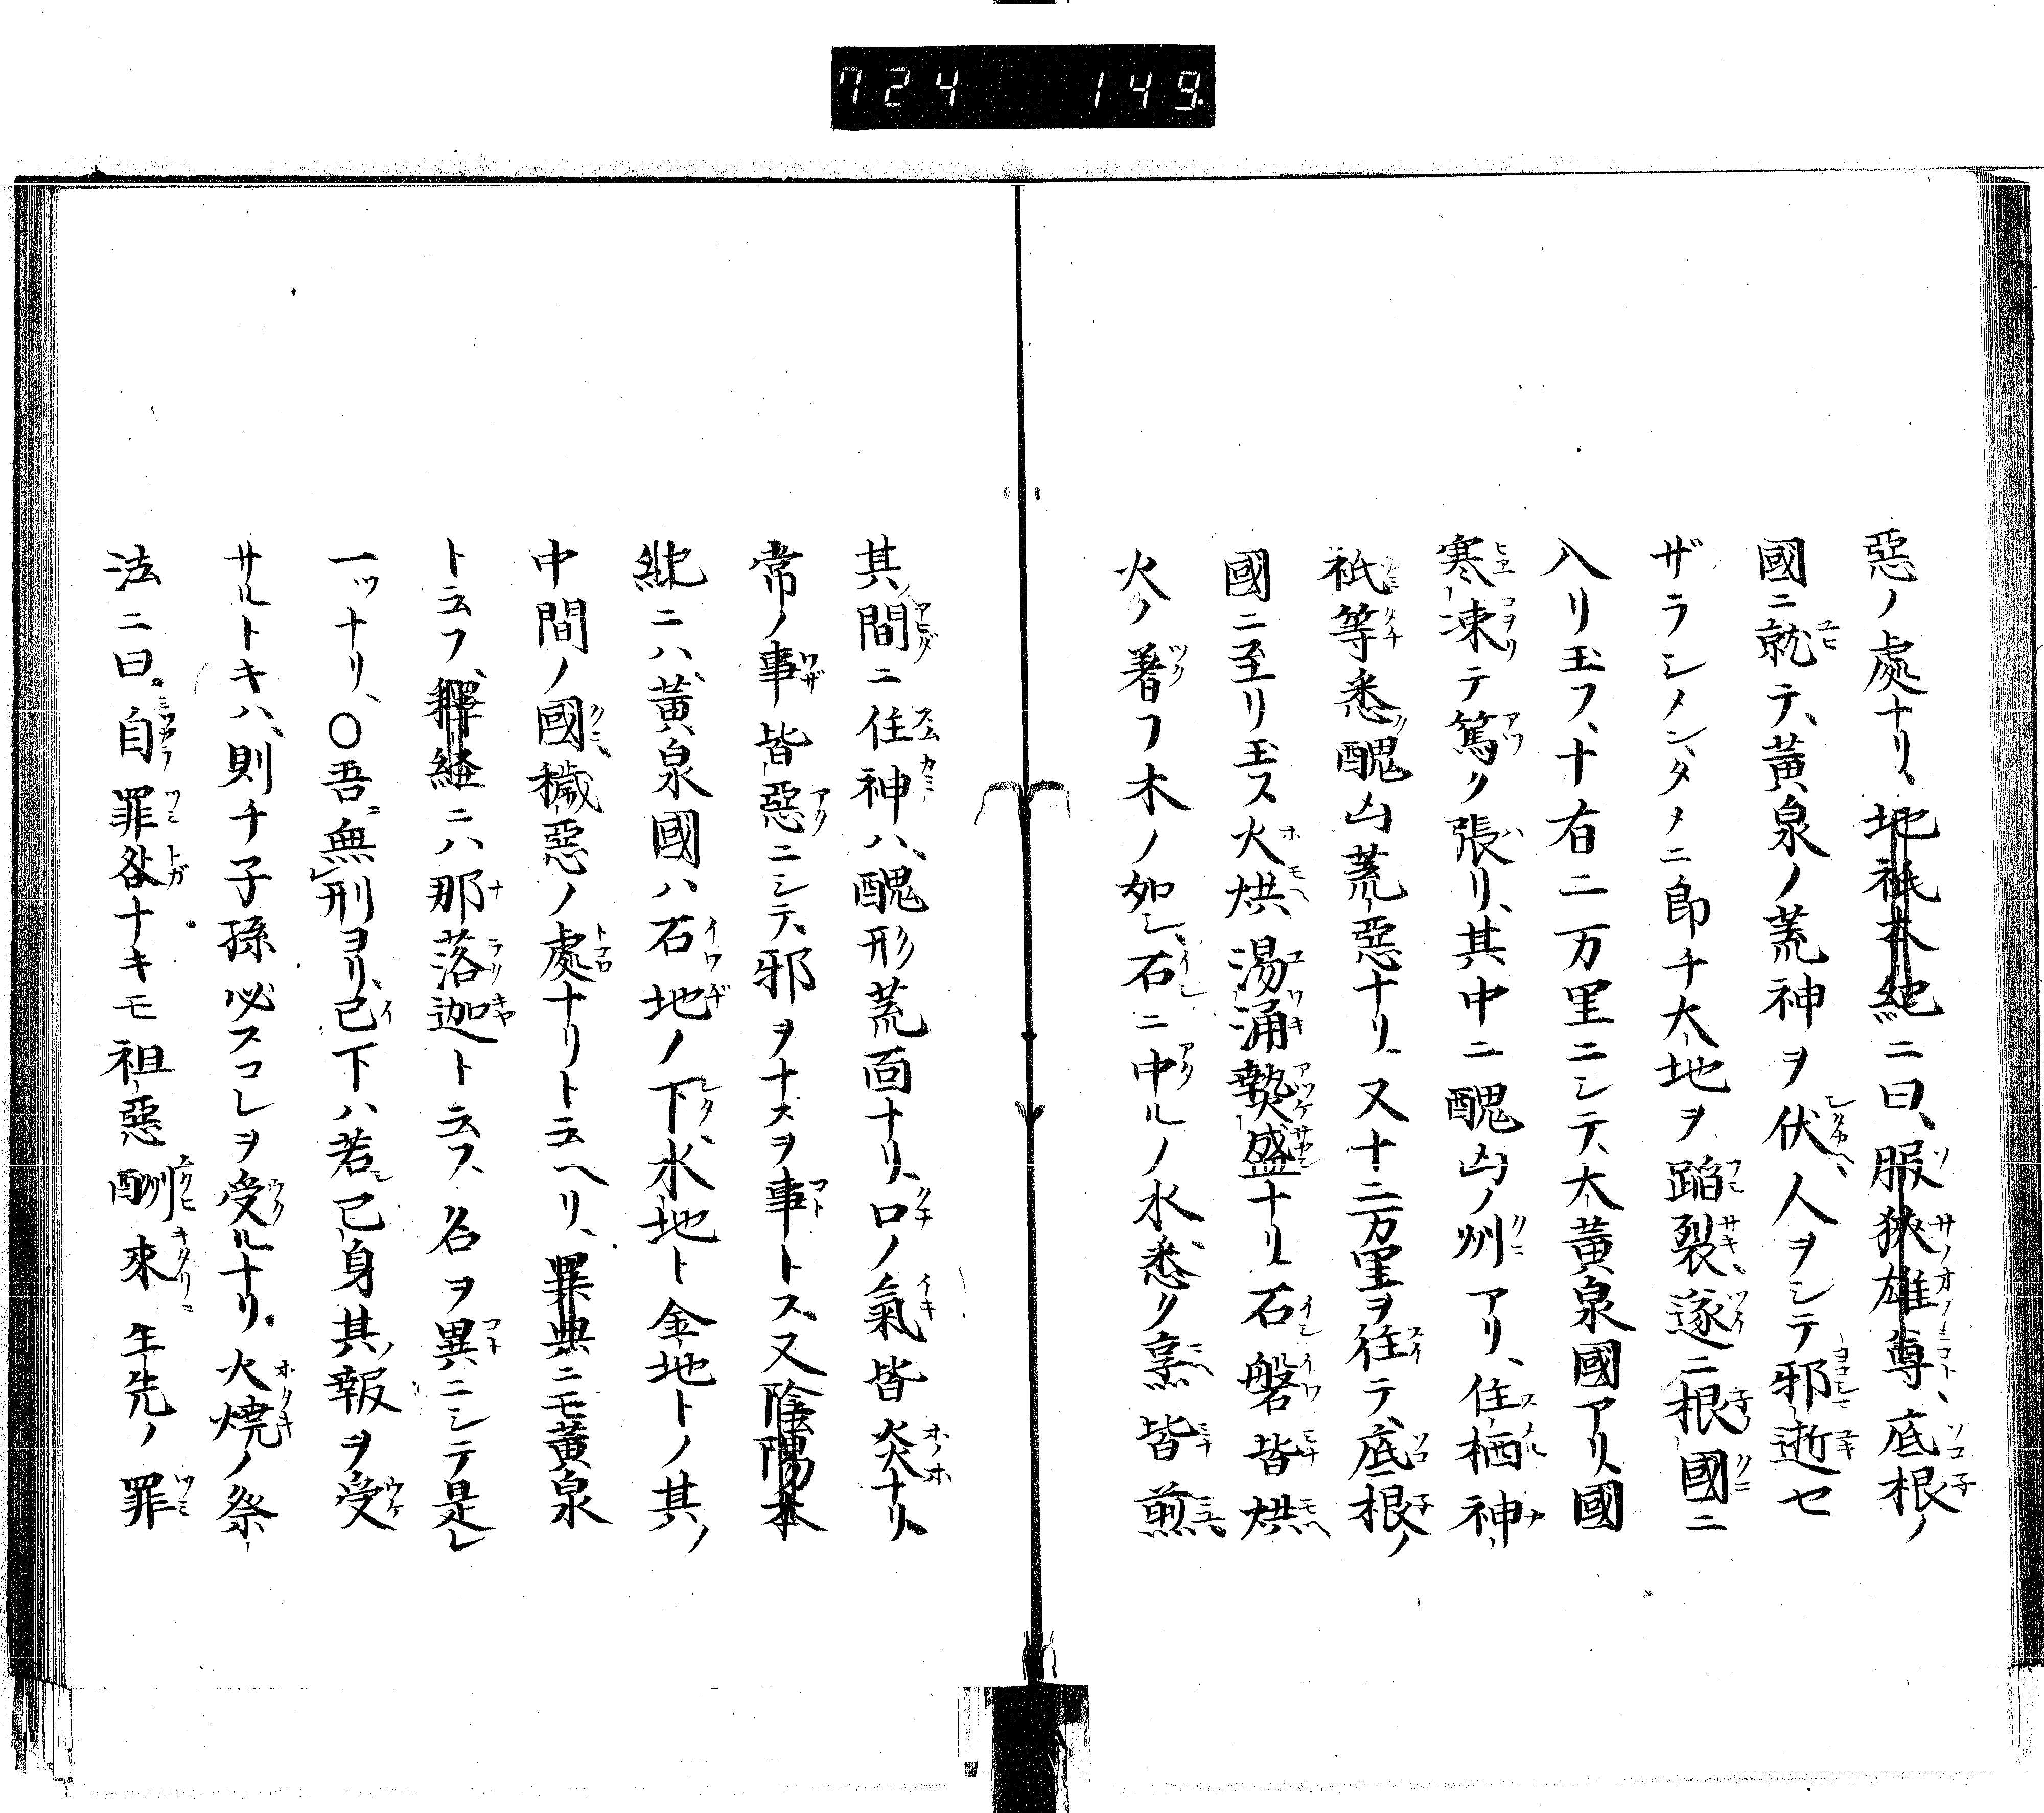 724 149
惡ノ處ナリ、地祇本紀ニ曰、服狹雄尊、底根ノ
國ニ就テ、黃泉ノ荒神ヲ伏、人ヲシテ邪逝セ
ザラシメン、タメニ即チ大地ヲ蹈裂、遂ニ根國ニ
入リ玉フ、十有二万里ニシテ、大黃泉國アリ、國
寒凍テ篤ク張リ、其中ニ醜凶ノ州アリ、住栖神
祇等悉醜凶荒惡ナリ、又十二万里ヲ往テ、底根ノ
國ニ至リ玉ス火烘、湯涌熱盛ナリ石磐皆烘
火ノ着フ木ノ如シ、石ニ中ルノ水、悉ク烹皆煎
其間ニ住神ハ、醜形荒面ナリ、口ノ氣皆炎ナリ、
常ノ事皆惡ニシテ、邪ヲナスヲ事トス、又陰陽本
紀ニハ、黃泉國ハ石地ノ下、水地ト金地トノ其ノ
中間ノ國、穢惡ノ處ナリト云ヘリ、異典ニモ黃泉
ト云フ、釋経ニハ那落迦ト云フ名ヲ異ニシテ是レ
一ッナリ、〇吾無刑ヨリ、已下ハ若シ已身其報ヲ受
サルトキハ、則チ子孫必スコレヲ受ルナリ。火燒ノ祭
法ニ曰。自罪咎ナキモ祖惡酬來年先ノ罪